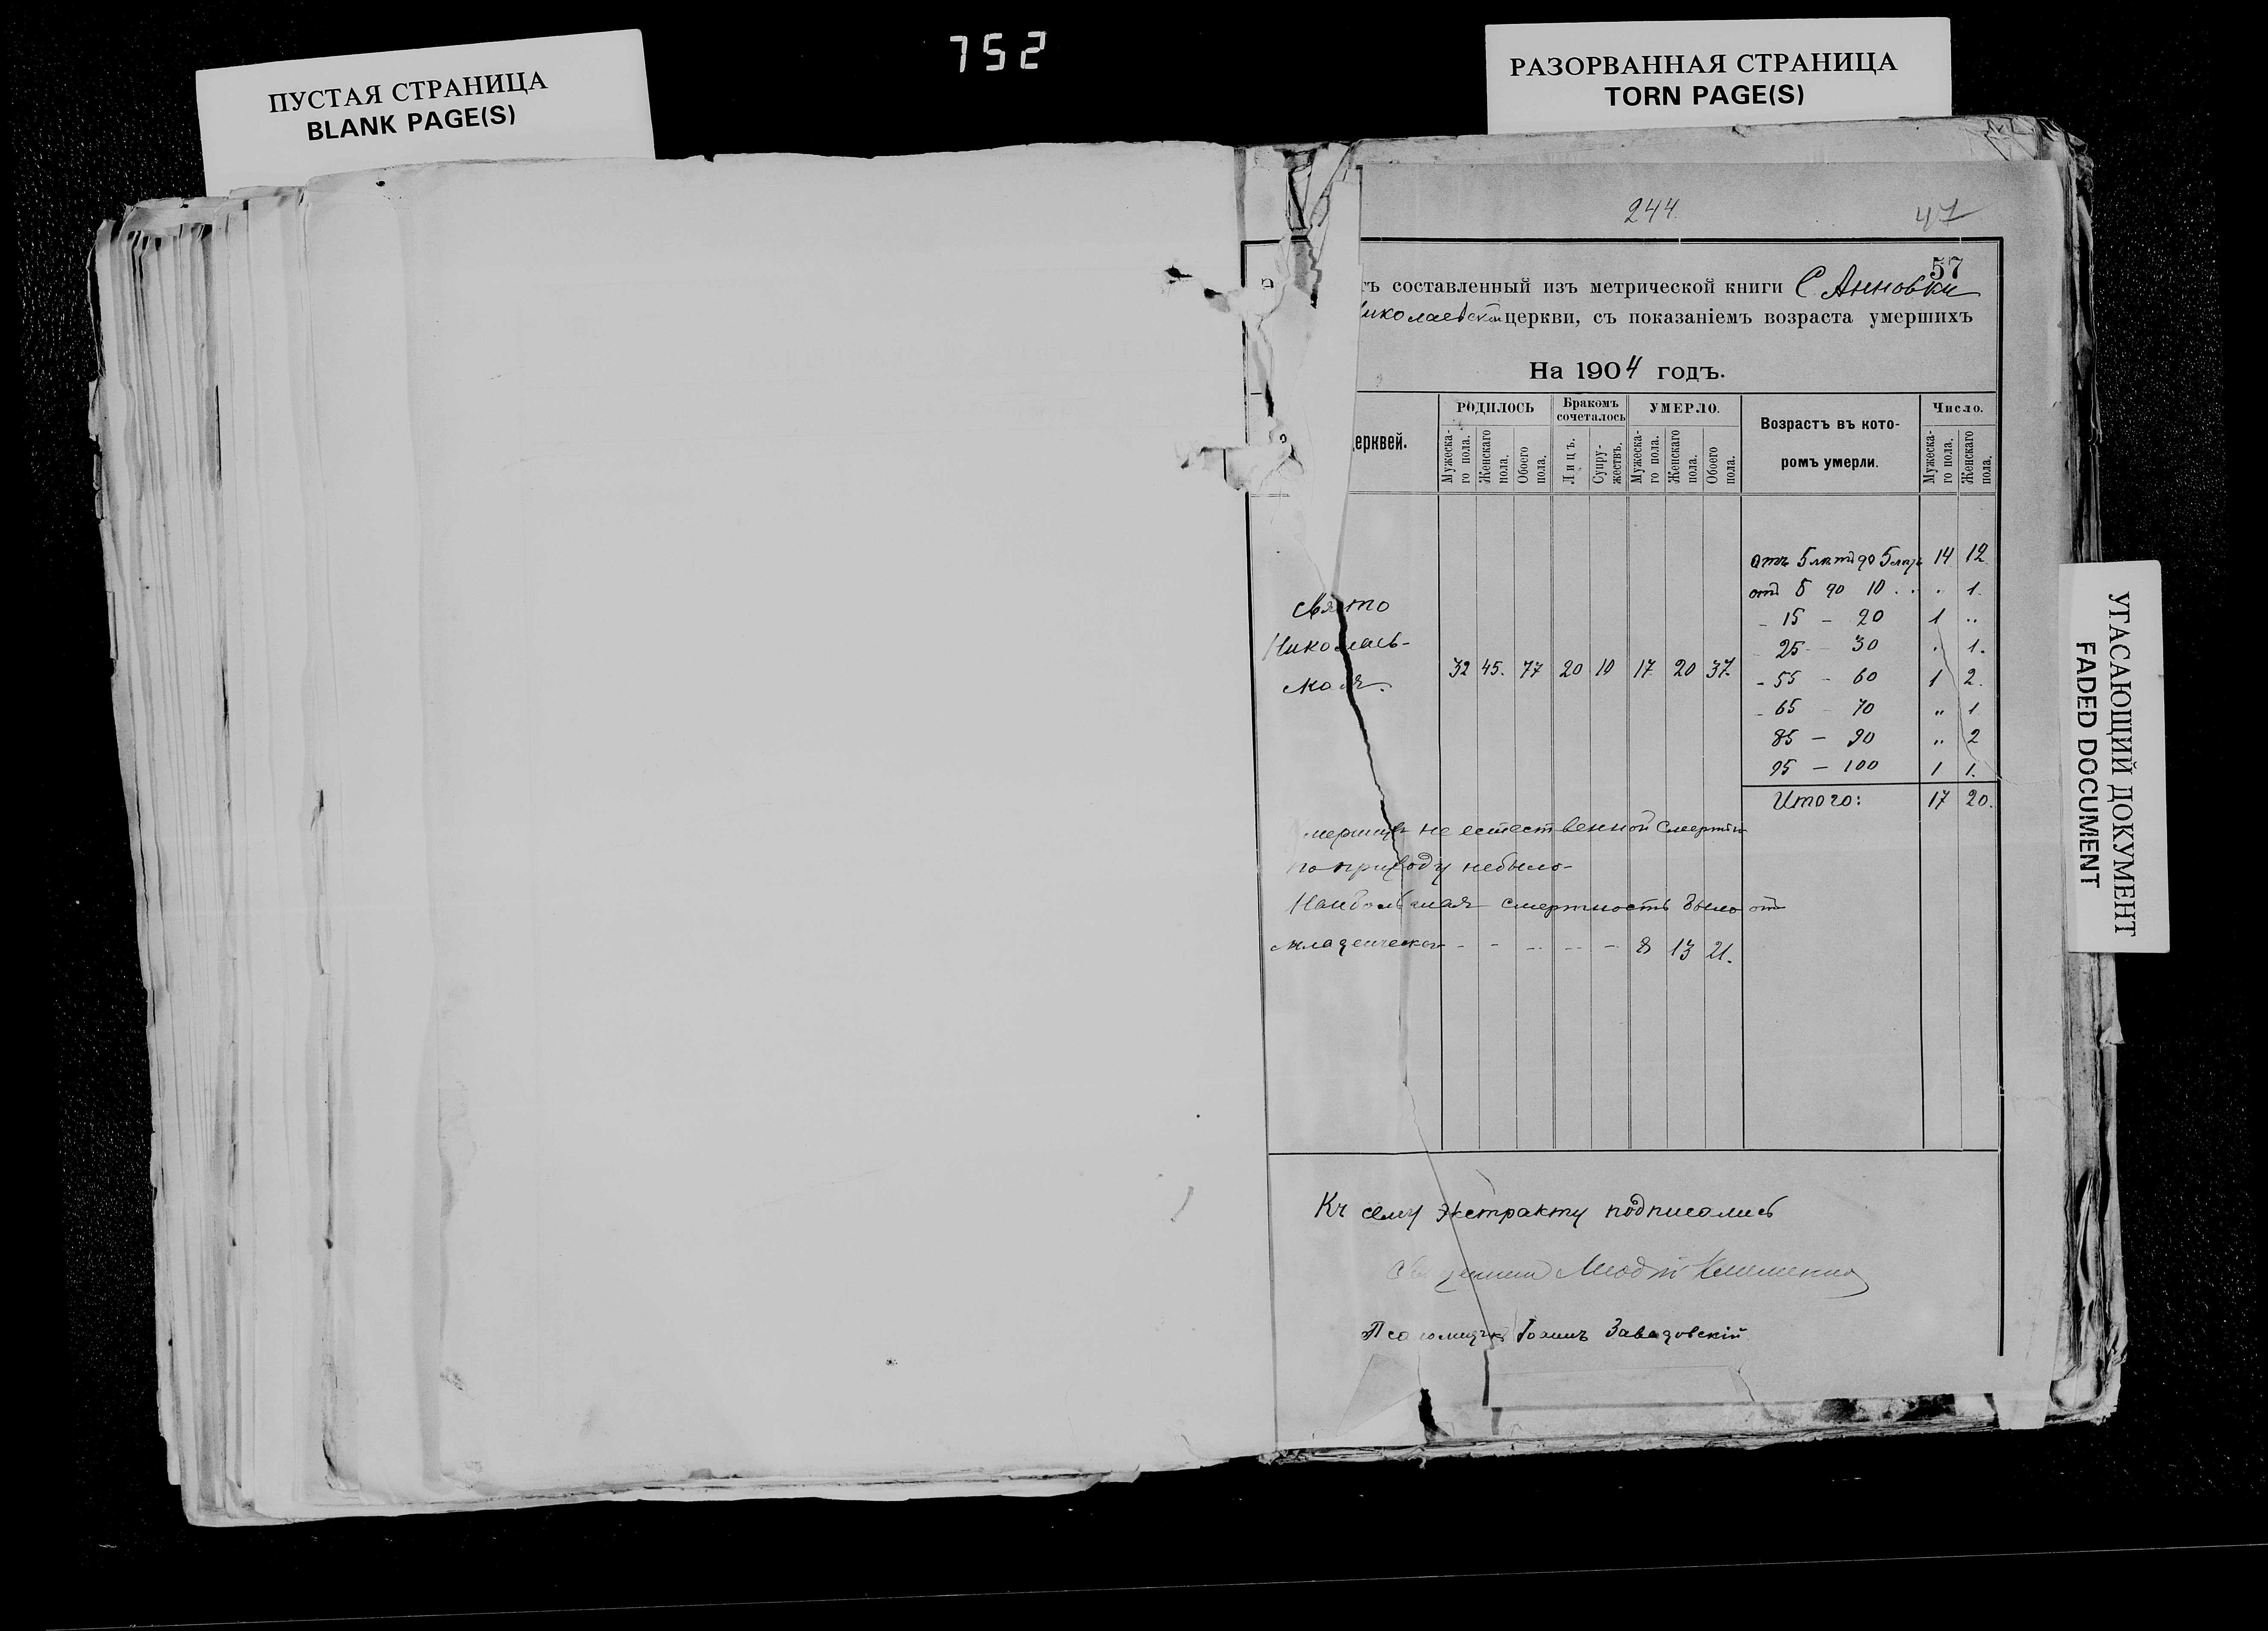 752
ПУСТАЯ СТРАНИЦА
BLANK PAGE(S)
РАЗОРВАННАЯ СТРАНИЦА
TORN PAGE(S)
244.
47
57
тъ составленный изъ метрической книги С. Анновки
иколаевской церкви, съ показаніемъ возраста умершихъ
На 1904 годъ.
ерквей.
РОДИЛОСЬ
Мужеска-го пола.
Женскаго пола.
Обоего пола.
Бракомъ сочеталось
Лицъ.
Супру-жествъ.
УМЕРЛО.
Мужеска-го пола.
Женскаго пола.
Обоего пола.
Возрастъ въ кото-
ромъ умерли.
Число.
Мужеска-го пола.
Женскаго пола.
Свято
Николаев-
ская.
32 45. 77 20 10 17 20 37.
Отъ 5 лѣтъ до 5 лѣтъ 14 12
отъ 5 до 10 . . . 1.
- 15 - 20 1 ..
25 - 30 . 1.
- 55 - 60 1 2.
- 65 - 70 „ 1
85 — 90 „ 2
95 — 100 1 1.
Итого: 17 20.
мершихъ не естественной смертію
по приходу небыло-
Наибольшая смертность была отъ
младенческой - - - - - 8 13 21.
Къ сему экстракту подписались
Псаломщикъ Завадовскій
УГАСАЮЩИЙ ДОКУМЕНТ
FADED DOCUMENT